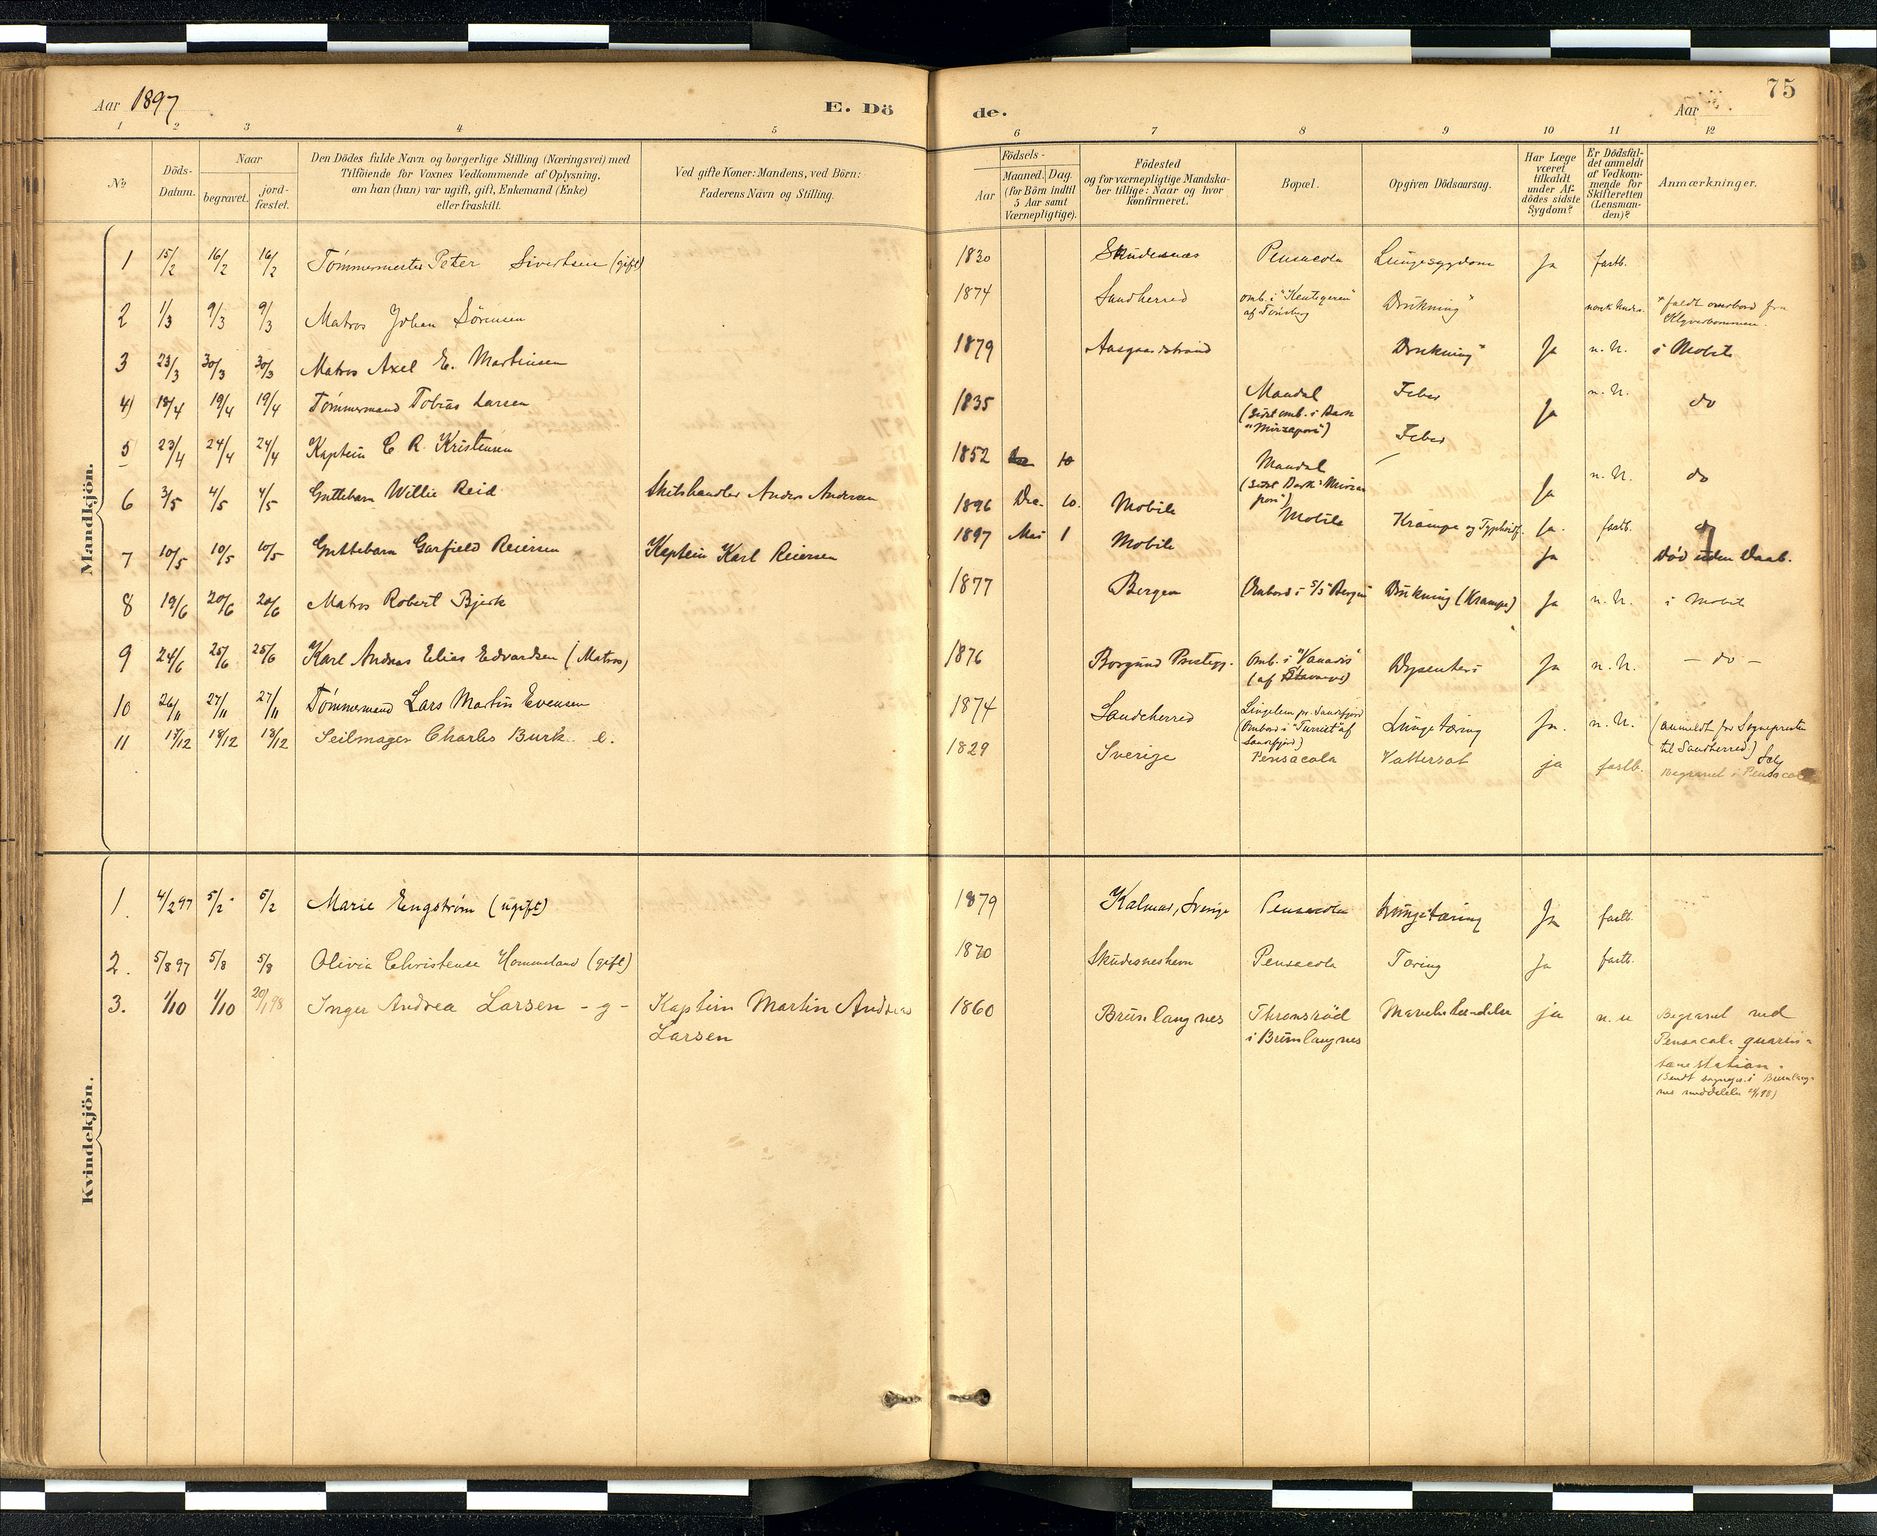 Aar 1897
E. Dö
de.
Aar
75
1 2 3 4 5 6 7 8 9 10 11 12
No
Döds-
Datum.
Naar
begravet.
jord-
fæstet.
Den Dödes fulde Navn og borgerlige Stilling (Næringsvei) med
Tilföiende for Voxnes Vedkommende af Oplysning,
om han (hun) var ugift, gift, Enkemand (Enke)
eller fraskilt.
Ved gifte Koner: Mandens, ved Börn:
Faderens Navn og Stilling.
Födsels-
Aar
Maaned.
Dag.
(for Börn indtil
5 Aar samt
Værnepligtige).
Födested
og for værnepligtige Mandska-
ber tillige: Naar og hvor
konfirmeret.
Bopæl.
Opgiven Dödsaarsag.
Har Læge
været
tilkaldt
under Af-
dödes sidste
Sygdom?
Er Dödsfal-
det anmeldt
af Vedkom-
mende for
Skifteretten
(Lensman-
den)?
Anmærkninger.
Mandkjön.
1 15/2 16/2 16/2 Tømmermester Peter Sivertsen (gift) 1830 Skudesnæs Pensacola Lungesygdom Ja fastb.
2 1/3 9/3 9/3 Matros Johan Sörensen 1874 Sandherred omb. i "Kentigern" Drukning" norsk Unders. * faldt overbord fra
af Tönsberg Klyverbommen.
3 23/3 30/3 30/3 Matros Axel E. Martinsen 1879 Aasgaardstrand Drukning" Ja n. U. i Mobile
4) 18/4 19/4 19/4 Tømmermand Tobias Larsen 1835 Mandal Feber Ja n. U. do
(sidst omb. i Bark
"Mirzapore")
5 23/4 24/4 24/4 Kaptein C. R. Kristensen 1852 10 Mandal Feber Ja n. U. do
(sidst Bark "Mirza
pore")
6 3/5 4/5 4/5 Guttebarn Willie Reid Skibshandler Anders Andersen 1896 Dec. 10. Mobile Mobile Krampe og Typhoidf. Ja. fastb. do
7 10/5 10/5 10/5 Guttebarn Garfield Reiersen Kaptein Karl Reiersen 1897 Mai 1 Mobile Ja Död uden Daab.
8 19/6 20/6 20/6 Matros Robert Bjerk 1877 Bergen Ombord i S/S "Bergen" Drukning (Krampe) Ja n. U. i Mobile
9 24/6 25/6 25/6 Karl Andreas Elias Edvardsen (Matros) 1876 Borgund Prestegj. Omb. i "Vanadis" Dysenteri Ja n. U. - do -
(af Stavanger)
10 26/11 27/11 27/11 Tømmermand Lars Martin Evensen 1874 Sandeherred Lingelem pr. Sandefjord Lungetæring Ja. n. U. (anmeldt for Sognepresten
(Ombord i "Turrist" af til Sandherred)
Sandefjord)
11 17/12 18/12 18/12 Seilmager Charles Burk e. 1829 Sverige Pensacola Vattersot ja fastb. Begravet i Pensacola
Kvindekjön.
1. 4/2 97 5/2 5/2 Marie Engström (ugift) 1879 Kalmar, Sverige Pensacola Lungetæring Ja fastb.
2. 5/8 97 5/8 5/8 Olivia Christense Hommeland (gift) 1870 Skudesneshevn Pensacola Tæring Ja fastb.
3. 1/10 1/10 20/1 98 Inger Andrea Larsen - g - Kaptein Martin Andreas 1860 Brunlangnes Thronsröd ja n. u Begravet ved
Larsen i Brunlangnes Pensacola quaran-
tænestation.
(Sendt sognepr. i Brunlang-
nes meddelelse